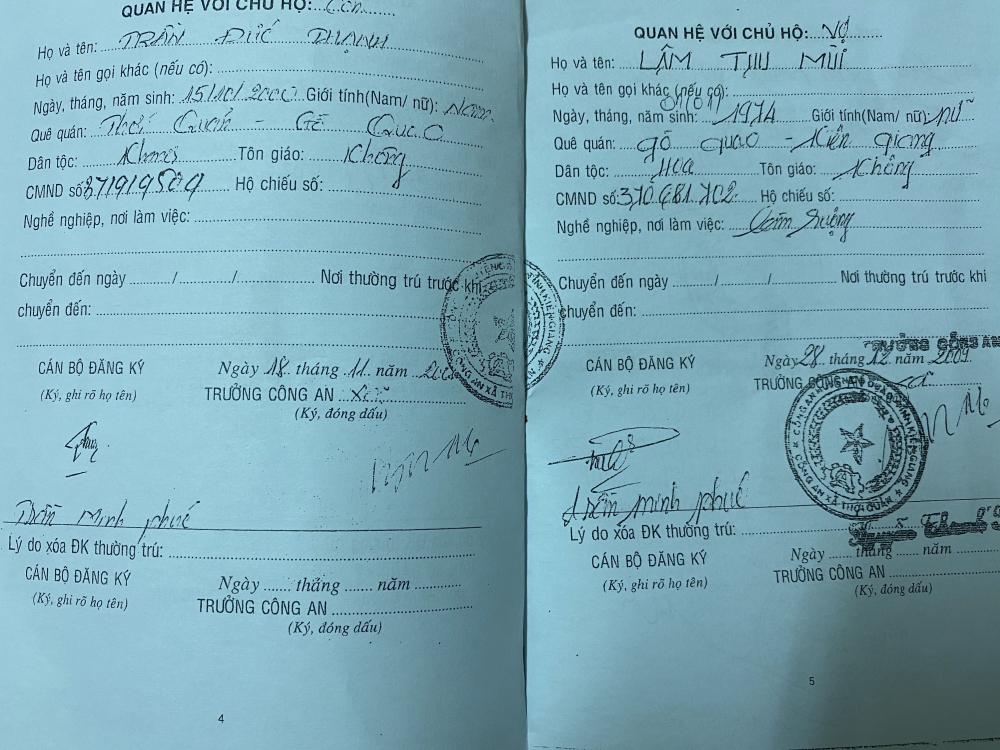 QUAN HỆ VỚI CHỦ HỘ: Con
Họ và tên: TRẦN ĐỨC THẠNH
Họ và tên gọi khác (nếu có):
Ngày, tháng, năm sinh: 15/10/2000 Giới tính(Nam/ nữ): Nam
Quê quán: Thới Quản - Gò Quao
Dân tộc: Khmer Tôn giáo: Không
CMND số: 371919509 Hộ chiếu số:
Nghề nghiệp, nơi làm việc:
Chuyển đến ngày ......./......./....... Nơi thường trú trước khi
chuyển đến:
CÁN BỘ ĐĂNG KÝ
(Ký, ghi rõ họ tên)
Ngày 18 tháng 11 năm
TRƯỞNG CÔNG AN Xã
(Ký, đóng dấu)
Trần Minh Phúc
Lý do xóa ĐK thường trú:
CÁN BỘ ĐĂNG KÝ
(Ký, ghi rõ họ tên)
Ngày ....... tháng ....... năm
TRƯỞNG CÔNG AN
(Ký, đóng dấu)
4
QUAN HỆ VỚI CHỦ HỘ: Vợ
Họ và tên: LÂM THU MÙI
Họ và tên gọi khác (nếu có):
Ngày, tháng, năm sinh: 01/01/1974 Giới tính(Nam/ nữ) nữ
Quê quán: gò quao - Kiên giang
Dân tộc: Hoa Tôn giáo: Không
CMND số: 370681702 Hộ chiếu số:
Nghề nghiệp, nơi làm việc: Làm ruộng
Chuyển đến ngày ......./......./....... Nơi thường trú trước khi
chuyển đến:
CÁN BỘ ĐĂNG KÝ
(Ký, ghi rõ họ tên)
TRƯỞNG CÔNG AN
Ngày 28 tháng 12 năm 2009
TRƯỞNG CÔNG AN xã
CÔNG AN XÃ THỚI QUẢN
Trần Minh Phúc
Lý do xóa ĐK thường trú:
CÁN BỘ ĐĂNG KÝ
(Ký, ghi rõ họ tên)
Ngày ....... tháng ....... năm
TRƯỞNG CÔNG AN
(Ký, đóng dấu)
5